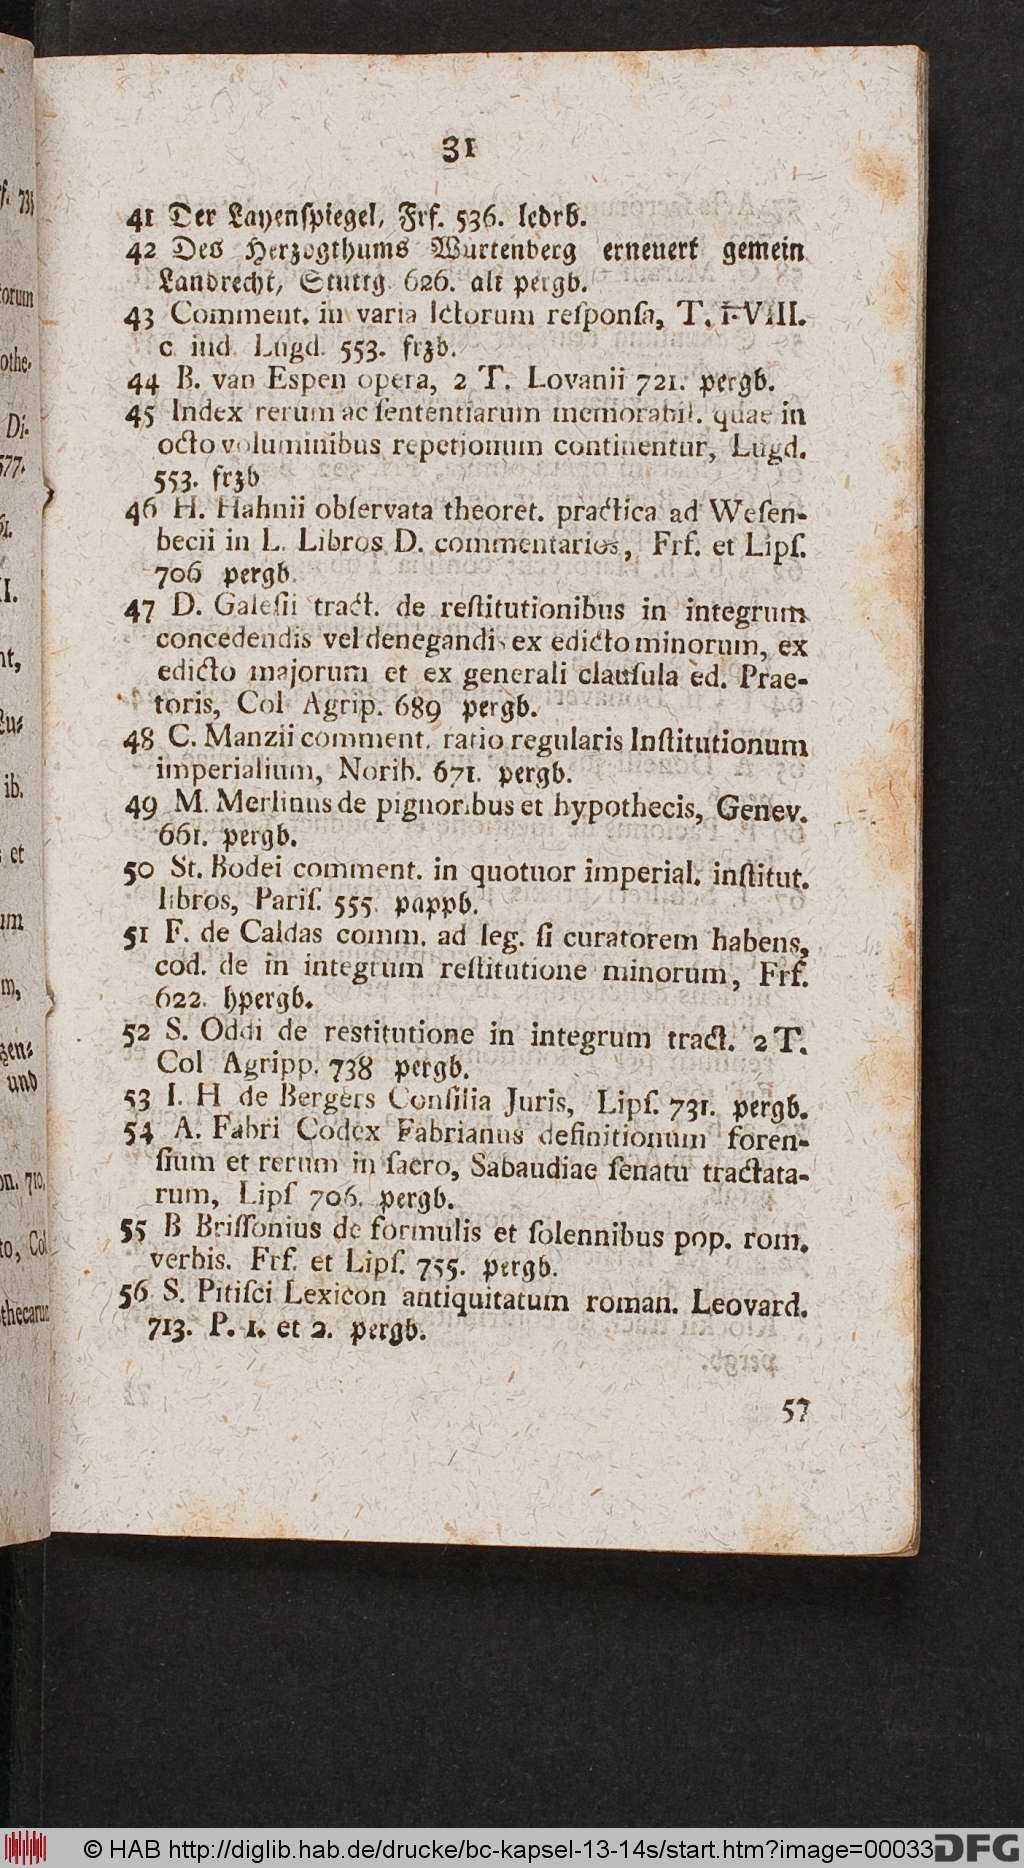 31
41 Der Layenſpiegel, Frf. 536. ledrb.
42 Des Herzogthums Wurtenberg erneuert gemein
Landrecht, Stuttg. 626. alt pergb.
43 Comment. in varia Ictorum reſponſa, T. I-VIII.
c ind. Lugd. 553. frzb.
44 B. van Espen opera, 2 T. Lovanii 721. pergb.
45 Index rerum ac ſententiarum memorabil. quae in
octo voluminibus repetionum continentur, Lugd.
553. frzb
46 H. Hahnii obſervata theoret. practica ad Weſen-
becii in L. Libros D. commentarios, Frf. et Lipſ.
706 pergb.
47 D. Galeſii tract. de reſtitutionibus in integrum
concedendis vel denegandis ex edicto minorum, ex
edicto majorum et ex generali clauſula ed. Prae-
toris, Col Agrip. 689 pergb.
48 C. Manzii comment. ratio regularis Inſtitutionum
imperialium, Norib. 671. pergb.
49 M. Merlinus de pignoribus et hypothecis, Genev.
661. pergb.
50 St. Bodei comment. in quotuor imperial. inſtitut.
libros, Pariſ. 555. pappb.
51 F. de Caldas comm. ad leg. ſi curatorem habens,
cod. de in integrum reſtitutione minorum, Frf.
622. hpergb.
52 S. Oddi de restitutione in integrum tract. 2 T.
Col Agripp. 738 pergb.
53 I. H de Bergers Conſilia Juris, Lipſ. 731. pergb.
54 A. Fabri Codex Fabrianus definitionum foren-
ſium et rerum in ſacro, Sabaudiae ſenatu tractata-
rum, Lipſ 706. pergb.
55 B Briſſonius de formulis et ſolennibus pop. rom.
verbis. Frf. et Lipſ. 755. pergb.
56 S. Pitiſci Lexicon antiquitatum roman. Leovard.
713. P. 1. et 2. pergb.
57
© HAB http://diglib.hab.de/drucke/bc-kapsel-13-14s/start.htm?image=00033
DFG